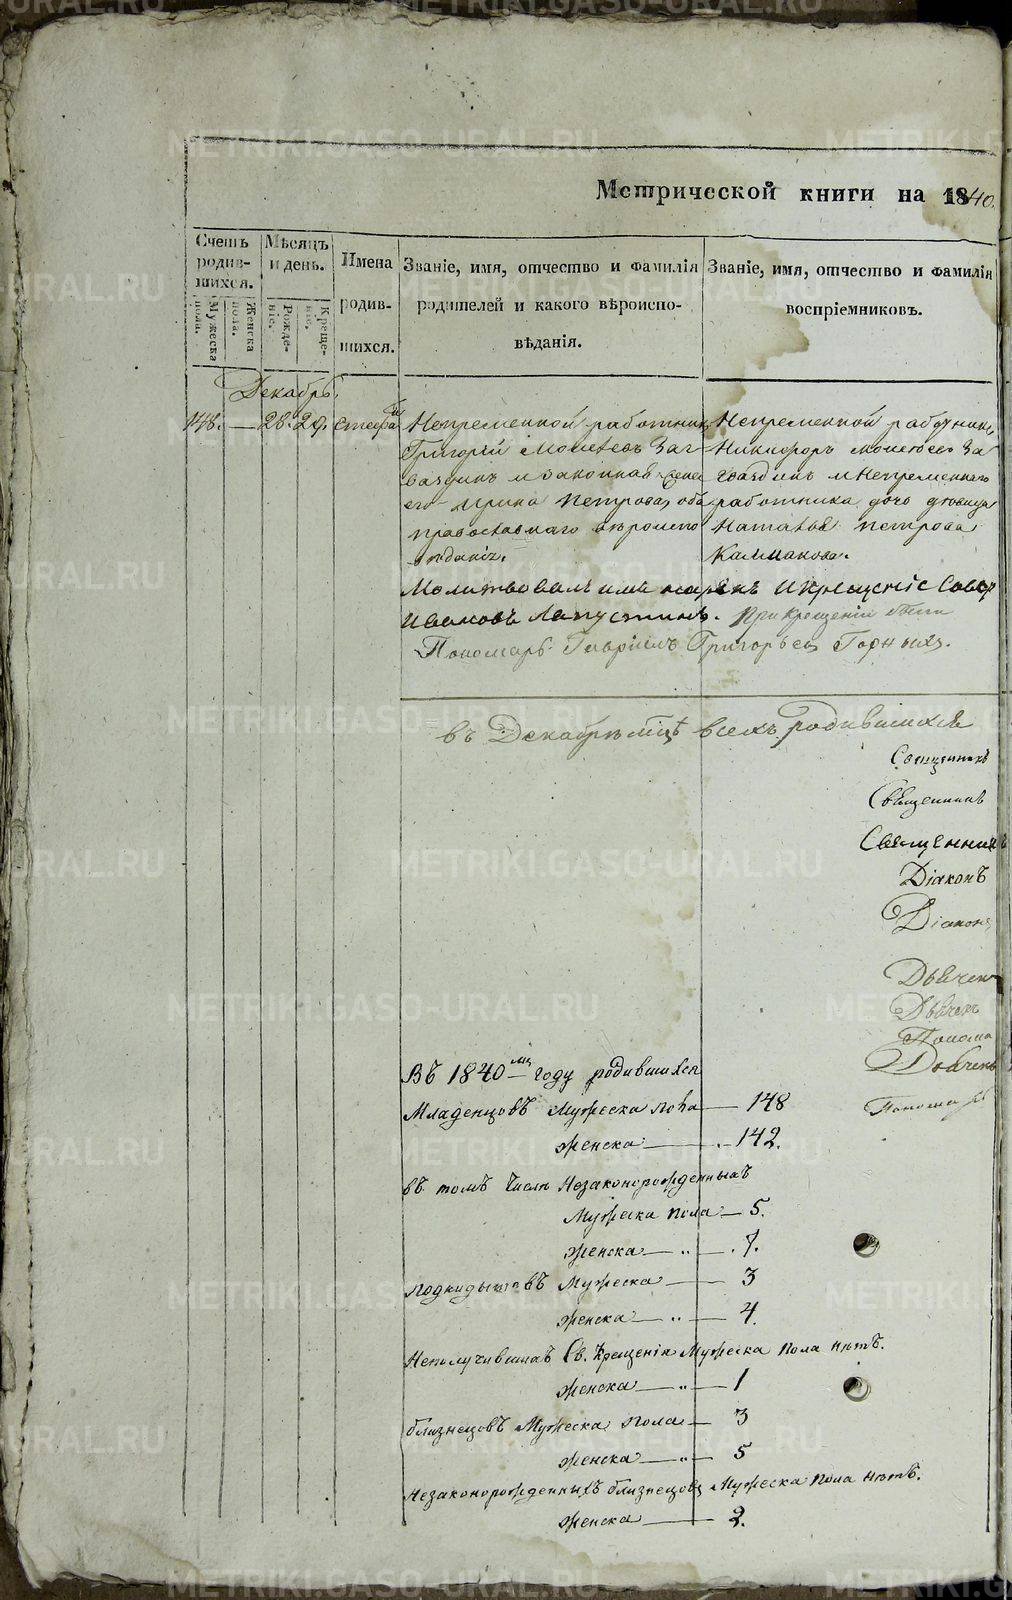 METRIKI.GASO-URAL.RU
Метрической книги на 1840.
Счетъ родив-шихся.
Мужеска пола.
Женска пола.
Мѣсяцъ и день.
Рожде-нiе.
Креще-нiе.
Имена родив-шихся.
Званiе, имя, отчество и фамилiя
родителей и какого вѣроиспо-
вѣданiя.
Званiе, имя, отчество и фамилiя
воспрiемниковъ.
Декабрь.
148. — 28. 29. Стефанъ
Непременной работникъ
Григорiй Моисѣевъ Заг
ваздинъ и законная жена
его Ирина Петрова, оба
православнаго вѣроиспо
вѣданiя.
Непременной работникъ
Никифоръ Моисѣевъ За
гваздинъ и Непременнаго
работника дочь дѣвица
Наталья Петрова
Калмакова.
Молитвовалъ имя нарекъ и крещенiе совер
Ивановъ Лапустинъ. При крещенiи были
Пономарь Гаврiилъ Григорьевъ Горныхъ.
въ Декабрѣ мцѣ всехъ родившихся
Священникъ
Священникъ
Священникъ
Дiаконъ
Дiаконъ
Дьячекъ
Дьячекъ
Понома
Дьячекъ
Пономарь
Въ 1840мъ году родившихся
Младенцовъ Мужеска пола — 148
женска — 142.
въ томъ числѣ Незаконорожденныхъ
Мужеска пола — 5.
женска — „ — 7.
подкидышовъ Мужеска — 3
женска — „ — 4.
Неполучившихъ Св. Крещенiя Мужеска пола нѣтъ.
женска — „ — 1
близнецовъ Мужеска пола — 3
женска — „ — 5
Незаконорожденныхъ близнецовъ Мужеска пола нѣтъ.
женска — 2.